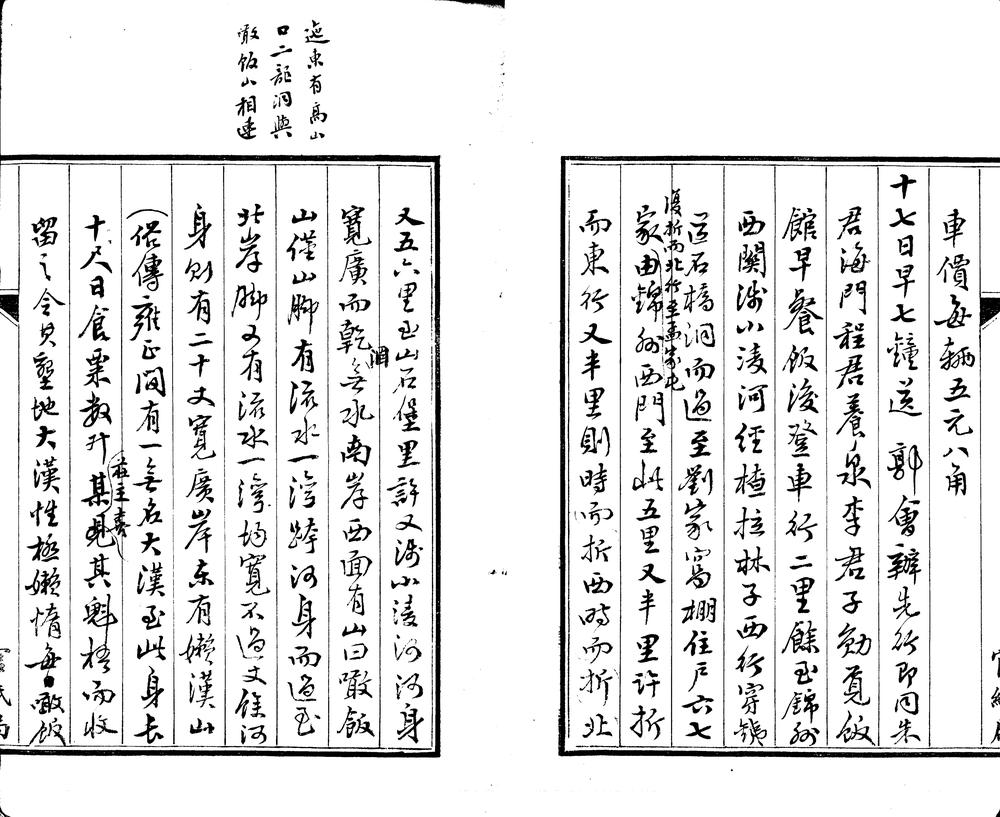 車價每輛五元八角
十七日早七鐘送 郭會辦先行即同朱
君海門程君養泉李君子勉覓飯
館早餐飯後登車行二里餘至錦州
西關涉小淩河經楂拉林子西行穿鐵
道石橋洞而過至劉家窩棚住戶六七
復折而北行至孟家屯
家由錦州西門至此五里又半里許折
而東行又半里則時而折西時而折北
迤東有高山
口二龍洞與
噉飯山相連
又五六里至山石堡里許又涉小淩河河身
寬廣而乾涸無水南岸西面有山曰噉飯
山僅山腳有流水一灣跨河身而過至
北岸腳又有流水一灣均寬不過丈餘河
身則有二十丈寬廣岸東有嬾漢山
(俗傳雍正間有一無名大漢至此身長
十尺日食粟數升某莊主喜其魁梧而收
留之令其墾地大漢性極嬾惰每日噉飯